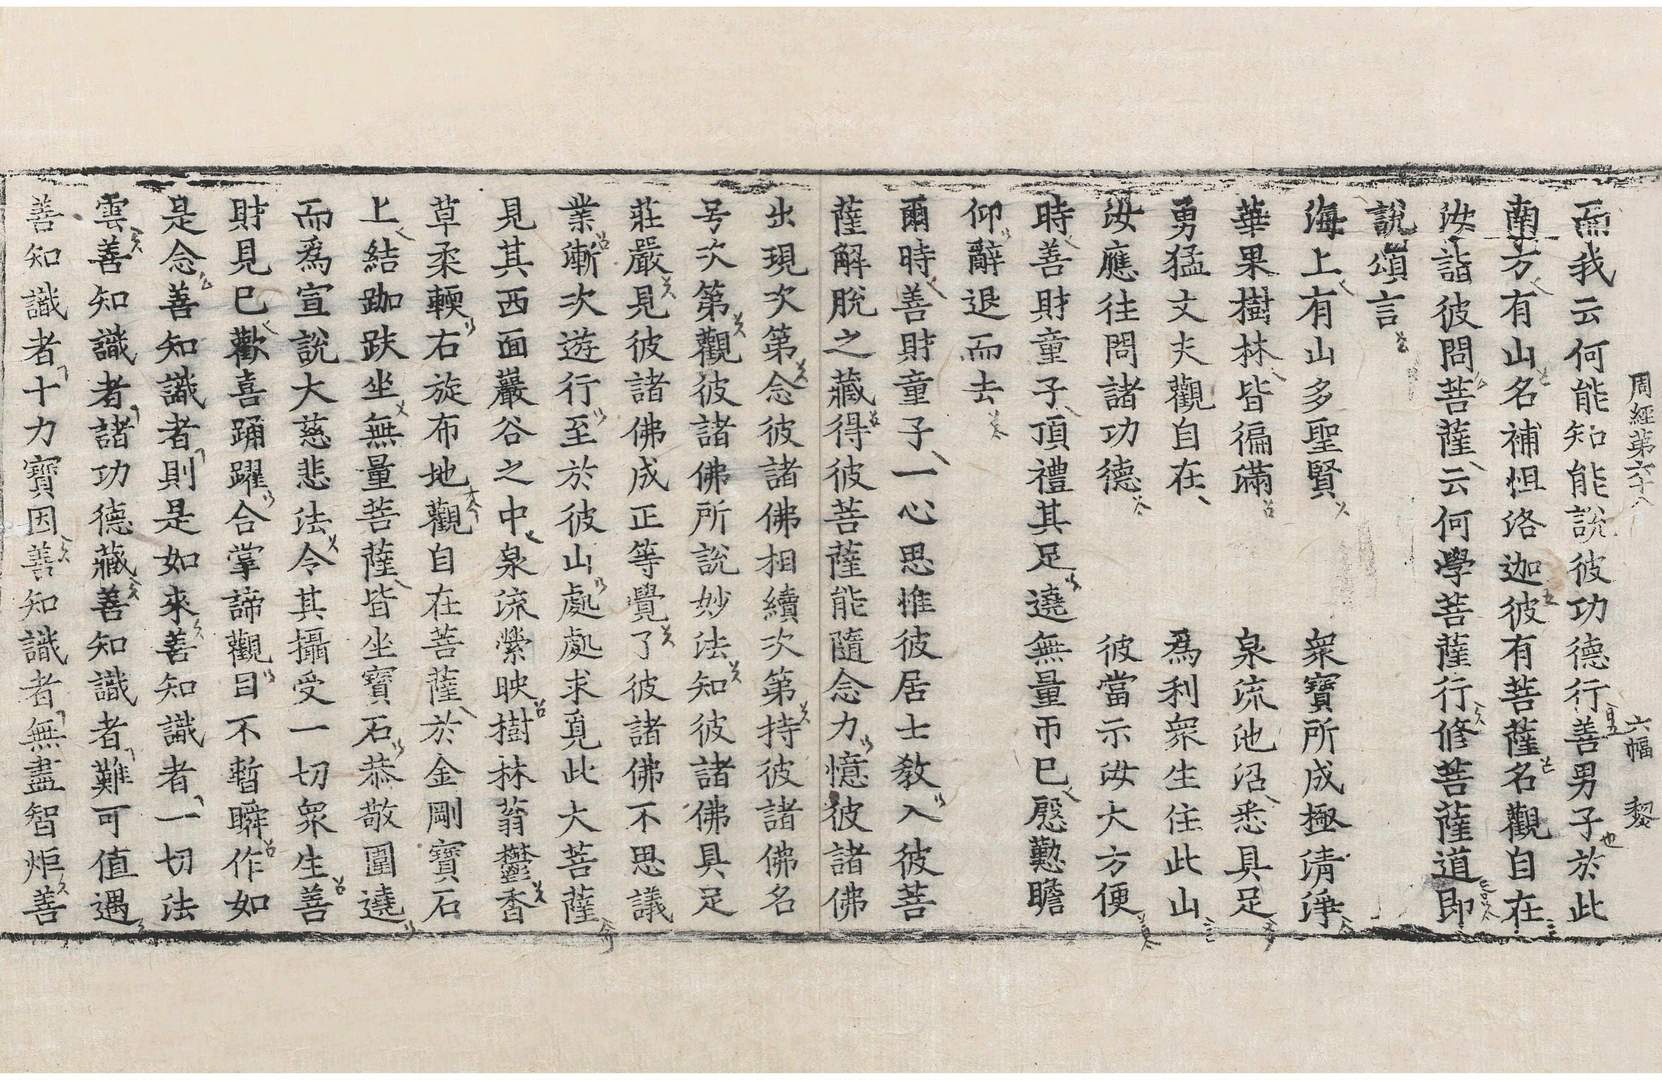 周經第六十八　六幅　黎
而我云何能知能說彼功德行善男子於此
南方有山名補怛洛迦彼有菩薩名觀自在
汝詣彼問菩薩云何學菩薩行修菩薩道即
說頌言
海上有山多聖賢　衆寶所成極清淨
華果樹林皆徧滿　泉流池沼悉具足
勇猛丈夫觀自在　爲利衆生住此山
汝應往問諸功德　彼當示汝大方便
時善財童子頂禮其足遶無量帀已慇懃瞻
仰辭退而去
爾時善財童子一心思惟彼居士教入彼菩
薩解脫之藏得彼菩薩能隨念力憶彼諸佛
出現次第念彼諸佛相續次第持彼諸佛名
号次第觀彼諸佛所說妙法知彼諸佛具足
莊嚴見彼諸佛成正等覺了彼諸佛不思議
業漸次遊行至於彼山處處求覓此大菩薩
見其西面巖谷之中泉流縈映樹林蓊鬱香
草柔輭右旋布地觀自在菩薩於金剛寶石
上結跏趺坐無量菩薩皆坐寶石恭敬圍遶
而爲宣說大慈悲法令其攝受一切衆生善
財見已歡喜踊躍合掌諦觀目不暫瞬作如
是念善知識者則是如來善知識者一切法
雲善知識者諸功德藏善知識者難可值遇
善知識者十力寶因善知識者無盡智炬善